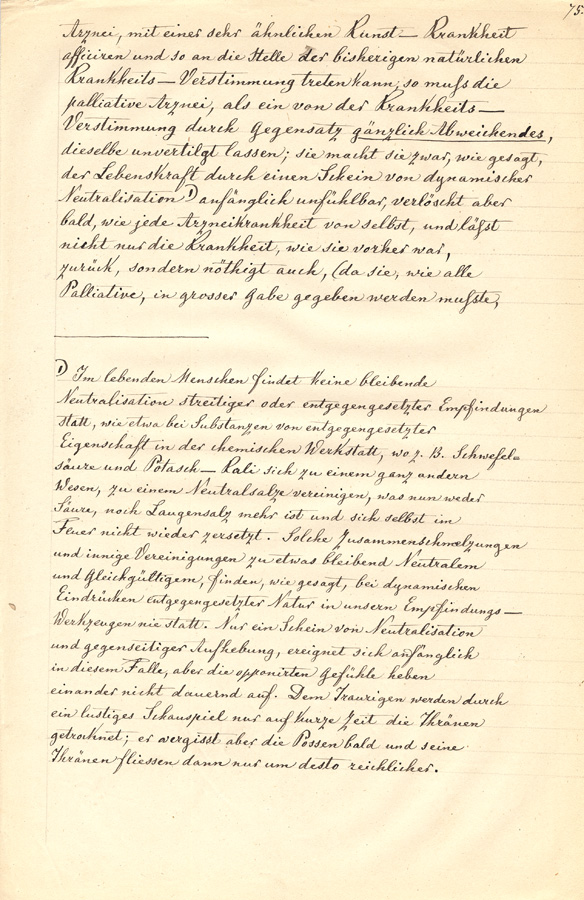 75.
Arznei, mit einer sehr ähnlichen Kunst – Krankheit
afficiren und so an die Stelle der bisherigen natürlichen
Krankheits – Verstimmung treten kann, so muſs die
palliative Arznei, als ein von der Krankheits –
Verstimmung durch Gegensatz gänzlich Abweichendes,
dieselbe unvertilgt lassen; sie macht sie zwar, wie gesagt,
der Lebenskraft durch einen Schein von dynamischer
Neutralisation 1) anfänglich unfühlbar, verlöscht aber
bald, wie jede Arzneikrankheit von selbst, und läſst
nicht nur die Krankheit, wie sie vorher war,
zurück, sondern nöthigt auch, (da sie, wie alle
Palliative, in grosser Gabe gegeben werden muſste,
1) Im lebenden Menschen findet keine bleibende
Neutralisation streitiger oder entgegengesetzter Empfindungen
statt, wie etwa bei Substanzen von entgegengesetzter
Eigenschaft in der chemischen Werkstatt, wo z. B. Schwefel=
säure und Potasch – Kali sich zu einem ganz andern
Wesen, zu einem Neutralsalze vereinigen, was nun weder
Säure, noch Laugensalz mehr ist und sich selbst im
Feuer nicht wieder zersetzt. Solche Zusammenschmelzungen
und innige Vereinigungen zu etwas bleibend Neutralem
und Gleichgültigem, finden, wie gesagt, bei dynamischen
Eindrücken entgegengesetzter Natur in unsern Empfindungs –
Werkzeugen nie statt. Nur ein Schein von Neutralisation
und gegenseitiger Aufhebung, ereignet sich anfänglich
in diesem Falle, aber die opponirten Gefühle heben
einander nicht dauernd auf. Dem Traurigen werden durch
ein lustiges Schauspiel nur auf kurze Zeit die Thränen
getrocknet; er vergisst aber die Possen bald und seine
Thränen fliessen dann nur um desto reichlicher.